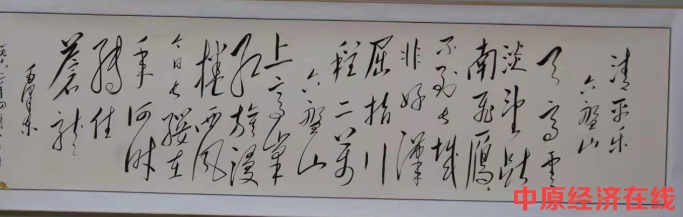 清平乐
六盘山
天高雲
淡望断
南飞雁
不到长城
非好漢
屈指行
程二萬
六盘山
上高峰
红旗漫
捲西风
今日长缨在
手何时
缚住
蒼龙
毛泽东
中原经济在线